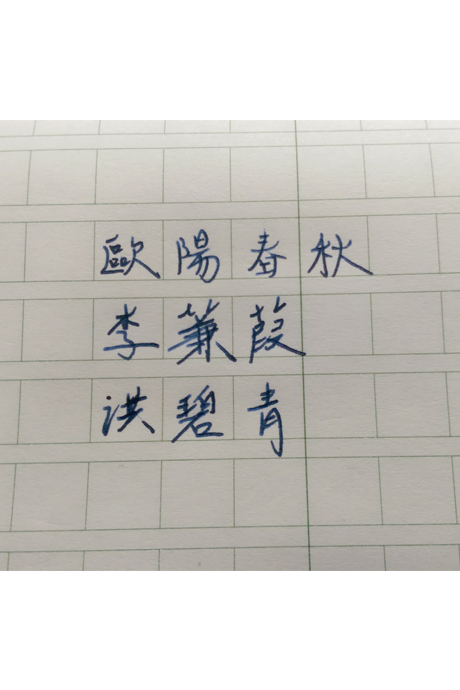 歐陽春秋
李蒹葭
洪碧青